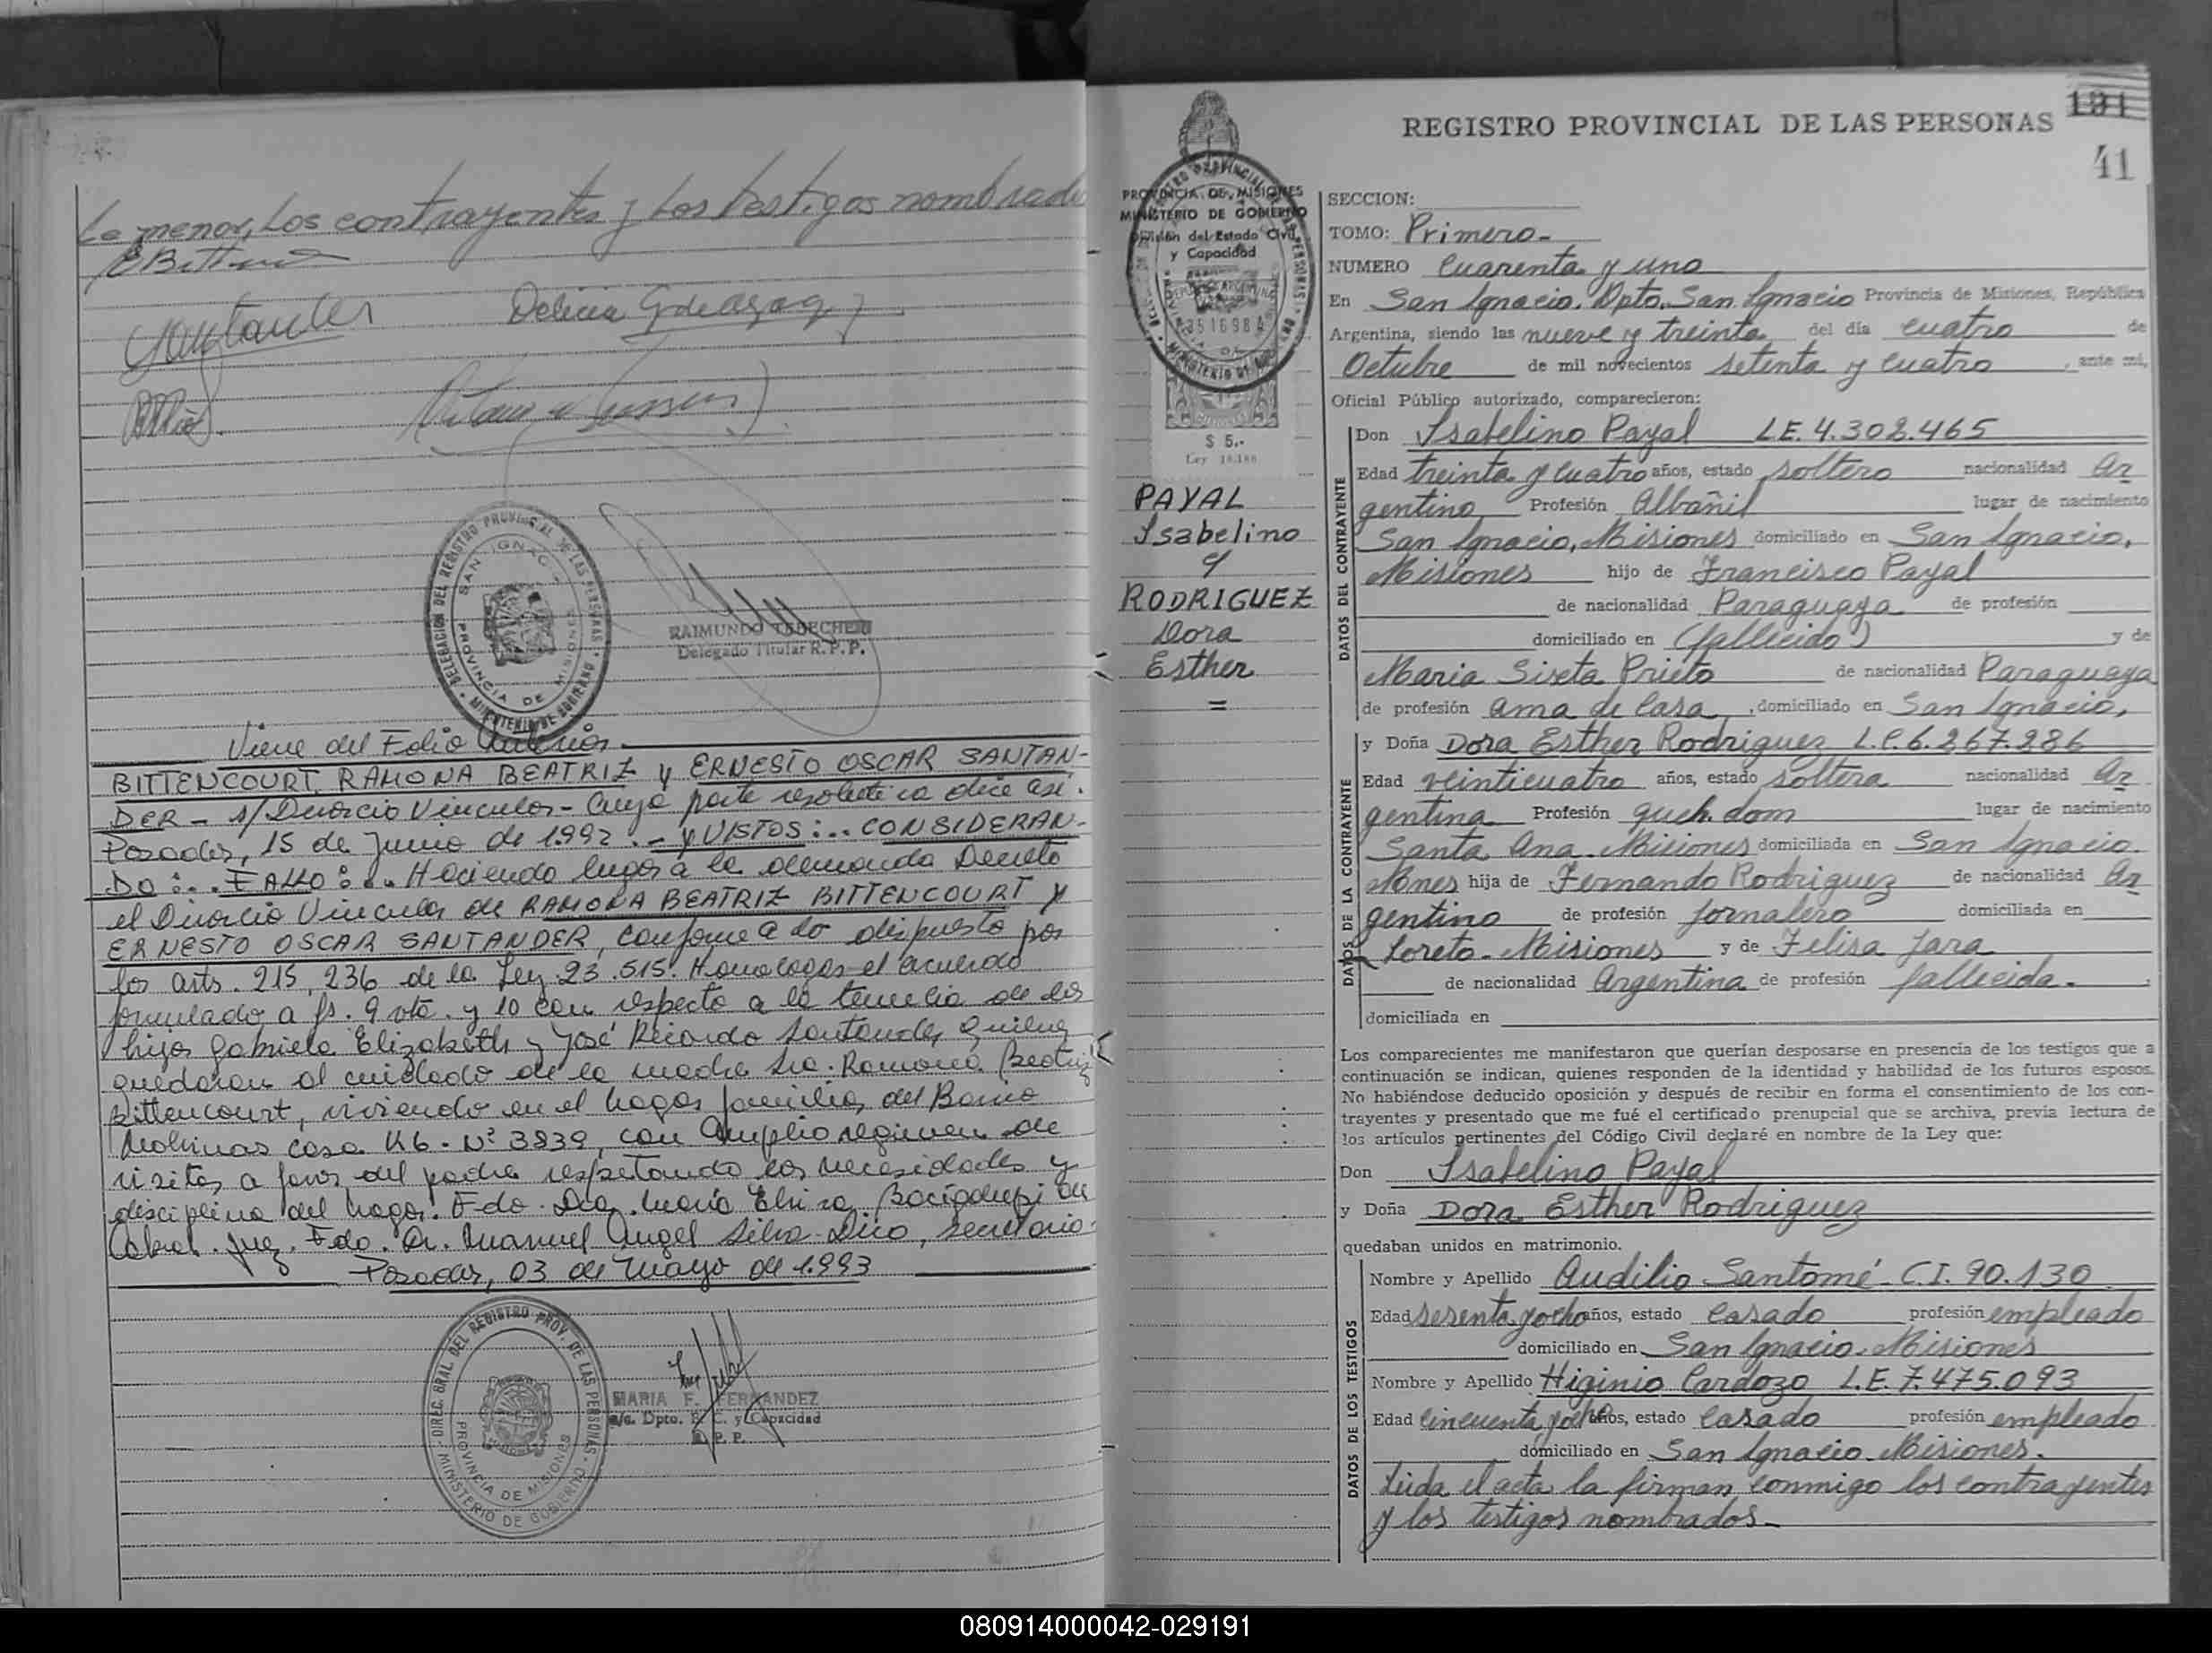 La menor, Los contrayentes y Los testigos nombrado
EBittencourt
Santander
Delicia
RAIMUNDO
Delegado Titular R.P.P.
DELEGACION DEL REGISTRO PROVINCIAL DE LAS PERSONAS
SAN IGNACIO
PROVINCIA DE MISIONES
MINISTERIO DE GOBIERNO
Viene del Folio Anterior.
BITTENCOURT, RAMONA BEATRIZ y ERNESTO OSCAR SANTAN-
DER - s/Divorcio Vincular - Cuya parte resolutiva dice así:
Posadas, 15 de Junio de 1.992. - y VISTOS:.. CONSIDERAN-
DO:.. FALLO:.. Haciendo lugar a la demanda Decreto
el Divorcio Vincular de RAMONA BEATRIZ BITTENCOURT y
ERNESTO OSCAR SANTANDER, conforme a lo dispuesto por
los arts. 215, 236 de la Ley 23.515. Homologar el acuerdo
formulado a fs. 9 vta. y 10 con respecto a la tenencia de los
hijos Gabriela Elizabeth y José Ricardo Santander quienes
quedaran al cuidado de la madre Sra. Ramona Beatriz
Bittencourt, viviendo en el hogar familiar del Barrio
Molinas casa K6 - Nº 3839, con amplio regimen de
visitas a favor del padre respetando las necesidades y
disciplina del hogar. Fdo. Dra. María Elvira de
Cabral. Juez. Fdo. Dr. Manuel Angel Silva Dico, Secretario.
Posadas, 03 de Mayo de 1.993
DIREC. GRAL. DEL REGISTRO PROV. DE LAS PERSONAS
PROVINCIA DE MISIONES
MINISTERIO DE GOBIERNO
MARIA F. FERNANDEZ
a/c. Dpto. E. C. y Capacidad
R. P. P.
REGISTRO PROVINCIAL DE LAS PERSONAS
191
41
PROVINCIA DE MISIONES
MINISTERIO DE GOBIERNO
División del Estado Civil
y Capacidad
$ 5.-
PAYAL
Isabelino
y
RODRIGUEZ
Dora
Esther
=
SECCION:
TOMO: Primero-
NUMERO Cuarenta y uno
En San Ignacio. Dpto. San Ignacio Provincia de Misiones, República
Argentina, siendo las nueve y treinta del día cuatro de
Octubre de mil novecientos setenta y cuatro, ante mí,
Oficial Público autorizado, comparecieron:
DATOS DEL CONTRAYENTE
Don Isabelino Payal L.E. 4.302.465
Edad treinta y cuatro años, estado soltero nacionalidad Ar
gentino Profesión Albañil lugar de nacimiento
San Ignacio, Misiones domiciliado en San Ignacio,
Misiones hijo de Francisco Payal
de nacionalidad Paraguaya de profesión
domiciliado en (fallecido) y de
Maria Sixta Prieto de nacionalidad Paraguaya
de profesión ama de casa, domiciliado en San Ignacio,
DATOS DE LA CONTRAYENTE
y Doña Dora Esther Rodriguez L.C. 6.267.286
Edad veinticuatro años, estado soltera nacionalidad Ar
gentina Profesión queh. dom lugar de nacimiento
Santa Ana. Misiones domiciliada en San Ignacio.
Mnes hija de Fernando Rodriguez de nacionalidad Ar
gentino de profesión jornalero domiciliada en
Loreto - Misiones y de Felisa Jara
de nacionalidad Argentina de profesión fallecida.
domiciliada en
Los comparecientes me manifestaron que querían desposarse en presencia de los testigos que a
continuación se indican, quienes responden de la identidad y habilidad de los futuros esposos.
No habiéndose deducido oposición y después de recibir en forma el consentimiento de los con-
trayentes y presentado que me fué el certificado prenupcial que se archiva, previa lectura de
los artículos pertinentes del Código Civil declaré en nombre de la Ley que:
Don Isabelino Payal
y Doña Dora Esther Rodriguez
quedaban unidos en matrimonio.
DATOS DE LOS TESTIGOS
Nombre y Apellido Audilio Santomé - C.I. 90.130
Edad sesenta y ocho años, estado casado profesión empleado
domiciliado en San Ignacio - Misiones
Nombre y Apellido Higinio Cardozo L.E. 7.475.093
Edad cincuenta y ocho años, estado casado profesión empleado
domiciliado en San Ignacio - Misiones.
Leida el acta la firman conmigo los contrayentes
y los testigos nombrados-
080914000042-029191